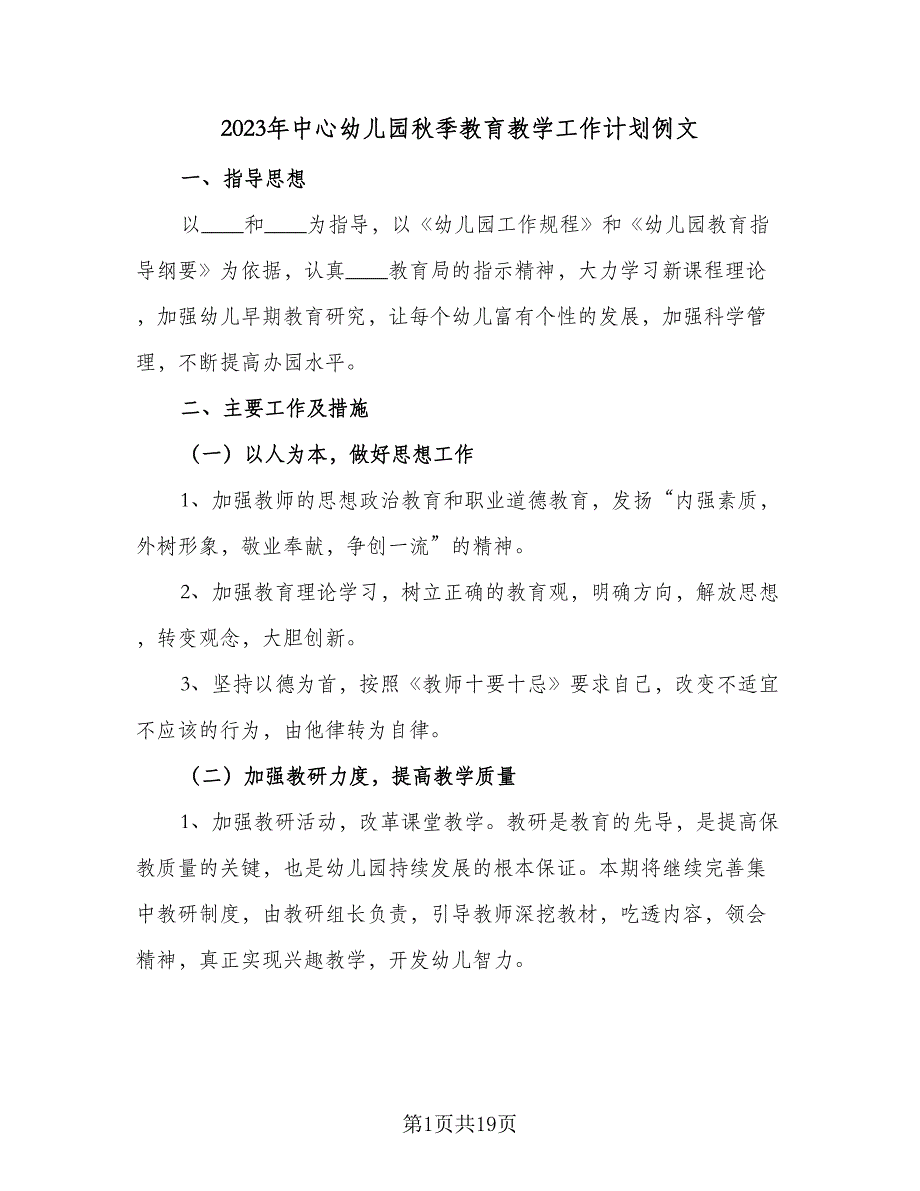 2023年中心幼儿园秋季教育教学工作计划例文
一、指导思想
以____和____为指导，以《幼儿园工作规程》和《幼儿园教育指
导纲要》为依据，认真____教育局的指示精神，大力学习新课程理论
，加强幼儿早期教育研究，让每个幼儿富有个性的发展，加强科学管
理，不断提高办园水平。
二、主要工作及措施
（一）以人为本，做好思想工作
1、加强教师的思想政治教育和职业道德教育，发扬“内强素质，
外树形象，敬业奉献，争创一流”的精神。
2、加强教育理论学习，树立正确的教育观，明确方向，解放思想
，转变观念，大胆创新。
3、坚持以德为首，按照《教师十要十忌》要求自己，改变不适宜
不应该的行为，由他律转为自律。
（二）加强教研力度，提高教学质量
1、加强教研活动，改革课堂教学。教研是教育的先导，是提高保
教质量的关键，也是幼儿园持续发展的根本保证。本期将继续完善集
中教研制度，由教研组长负责，引导教师深挖教材，吃透内容，领会
精神，真正实现兴趣教学，开发幼儿智力。
第1页共19页